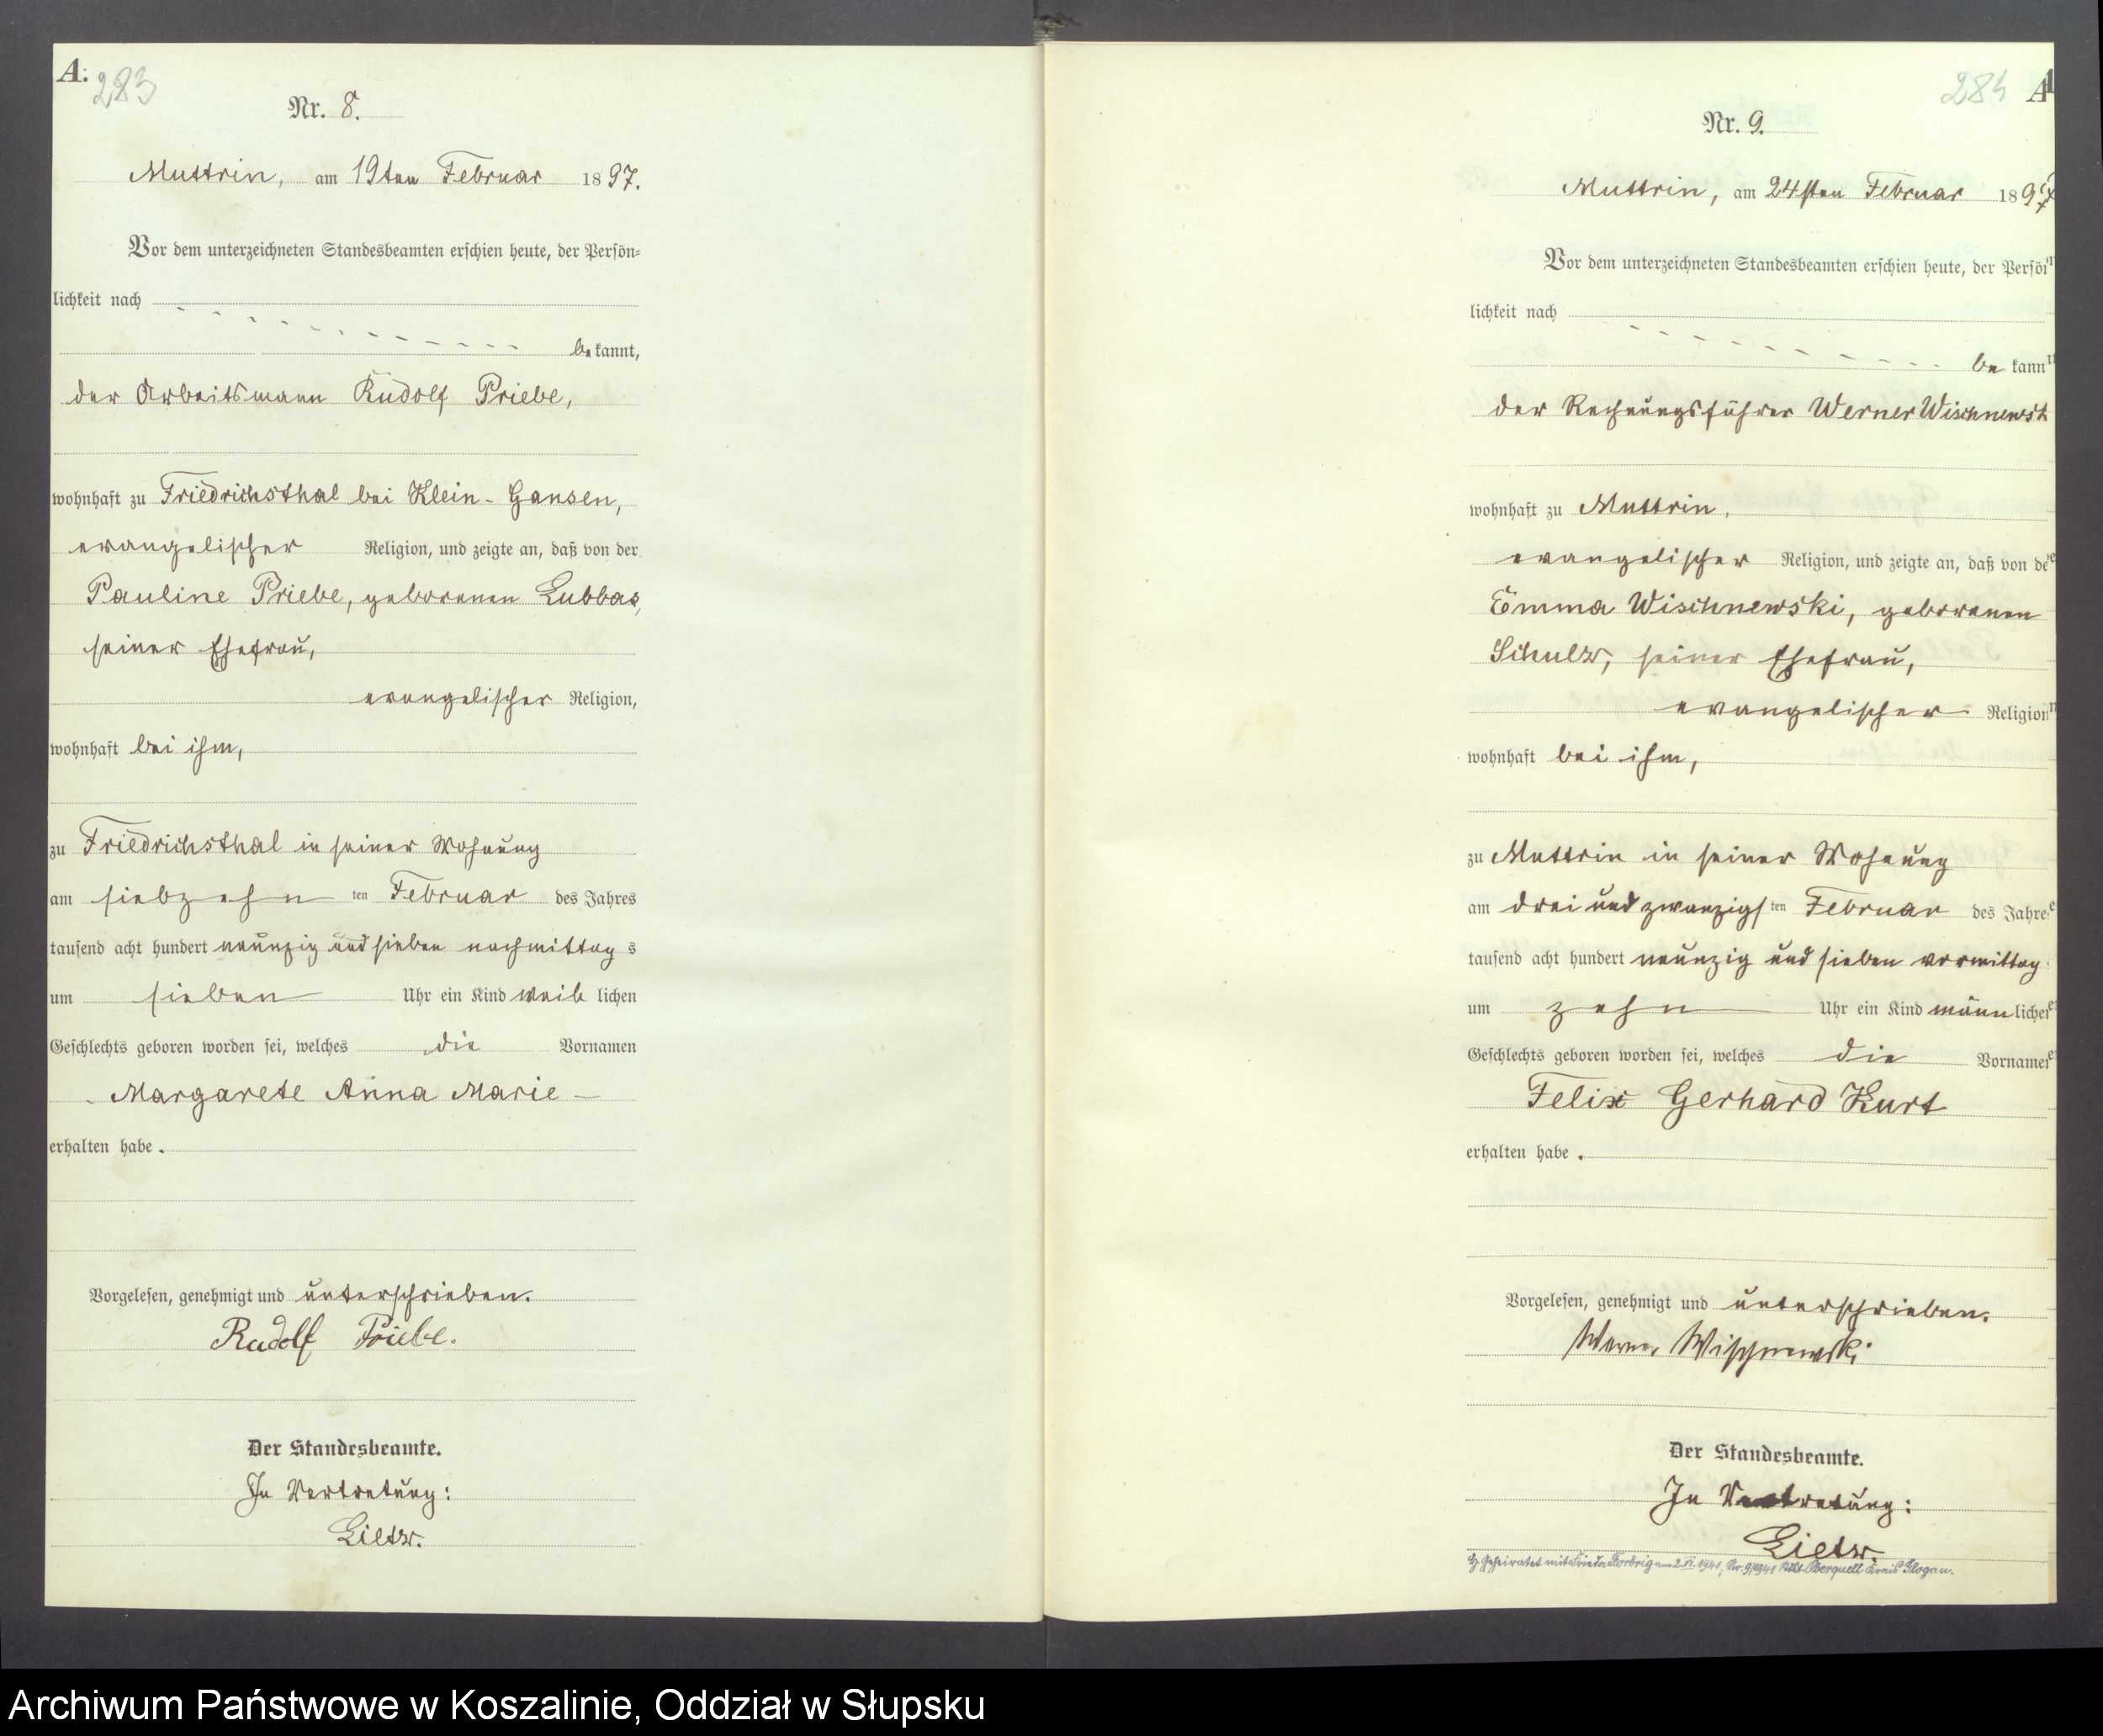 A.
283
Nr. 8.
Muttrin, am 19ten Februar 1897.
Vor dem unterzeichneten Standesbeamten erschien heute, der Persön-
lichkeit nach
be kannt,
der Arbeitsmann Rudolf Priebe,
wohnhaft zu Friedrichsthal bei Klein-Gansen,
evangelischer Religion, und zeigte an, daß von der
Pauline Priebe, geborenen Lubbas,
seiner Ehefrau,
evangelischer Religion,
wohnhaft bei ihm,
zu Friedrichsthal in seiner Wohnung
am siebzehn ten Februar des Jahres
tausend acht hundert neunzig und sieben nachmittag s
um sieben Uhr ein Kind weib lichen
Geschlechts geboren worden sei, welches die Vornamen
Margarete Anna Marie
erhalten habe.
Vorgelesen, genehmigt und unterschrieben.
Rudolf Priebe.
Der Standesbeamte.
In Vertretung:
Lietz.
284 A
Nr. 9.
Muttrin, am 24sten Februar 1897
Vor dem unterzeichneten Standesbeamten erschien heute, der Persön
lichkeit nach
be kann
der Rechnungsführer Werner Wischnewsk
wohnhaft zu Muttrin,
evangelischer Religion, und zeigte an, daß von de
Emma Wischnewski, geborenen
Schulz, seiner Ehefrau,
evangelischer Religion
wohnhaft bei ihm,
zu Muttrin in seiner Wohnung
am drei und zwanzigs ten Februar des Jahre
tausend acht hundert neunzig und sieben vormittag
um zehn Uhr ein Kind männ liche
Geschlechts geboren worden sei, welches die Vorname
Felix Gerhard Kurt
erhalten habe.
Vorgelesen, genehmigt und unterschrieben.
Werner Wischnewski
Der Standesbeamte.
In Vertretung:
Lietz.
Geheiratet mit Frieda am 2.VI.1941, Nr. 9/1941 Oberquell Kreis Glogau.
Archiwum Państwowe w Koszalinie, Oddział w Słupsku